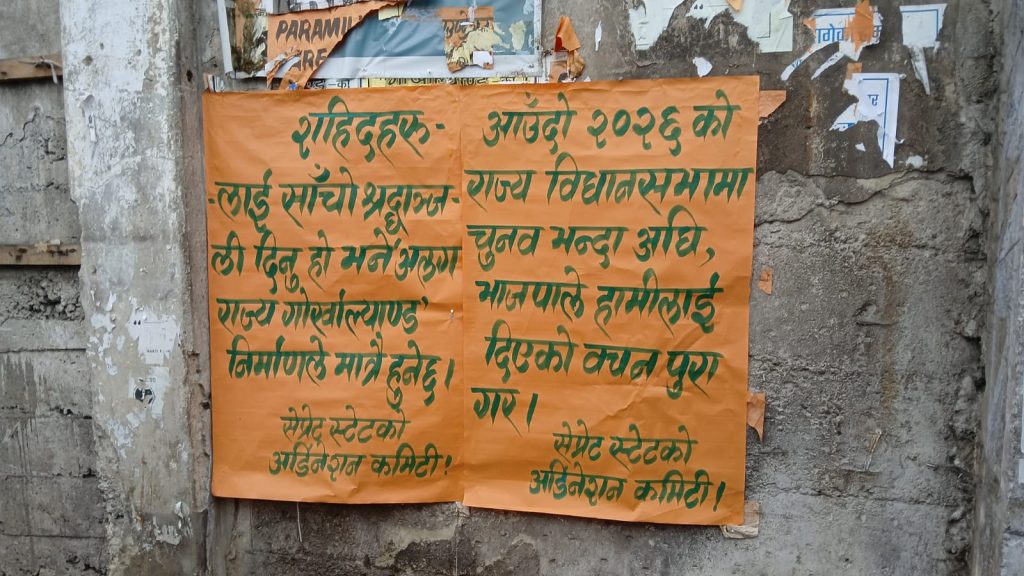 PARAMI
RE
शहिदहरू-
-लाई साँचो श्रद्धाञ्ज-
ली दिनु हो भने 'अलग
राज्य गोर्खाल्याण्ड'
निर्माणले मात्रै हुनेछ।
सेप्रेट स्टेटको
अर्डिनेशन कमिटी!
आउँदो २०२६ को
राज्य विधानसभामा
चुनव भन्दा अघि,
भाजपाले हामीलाई
दिएको वचन पुरा
गर।
सेप्रेट स्टेटको
अर्डिनेशन कमिटी!